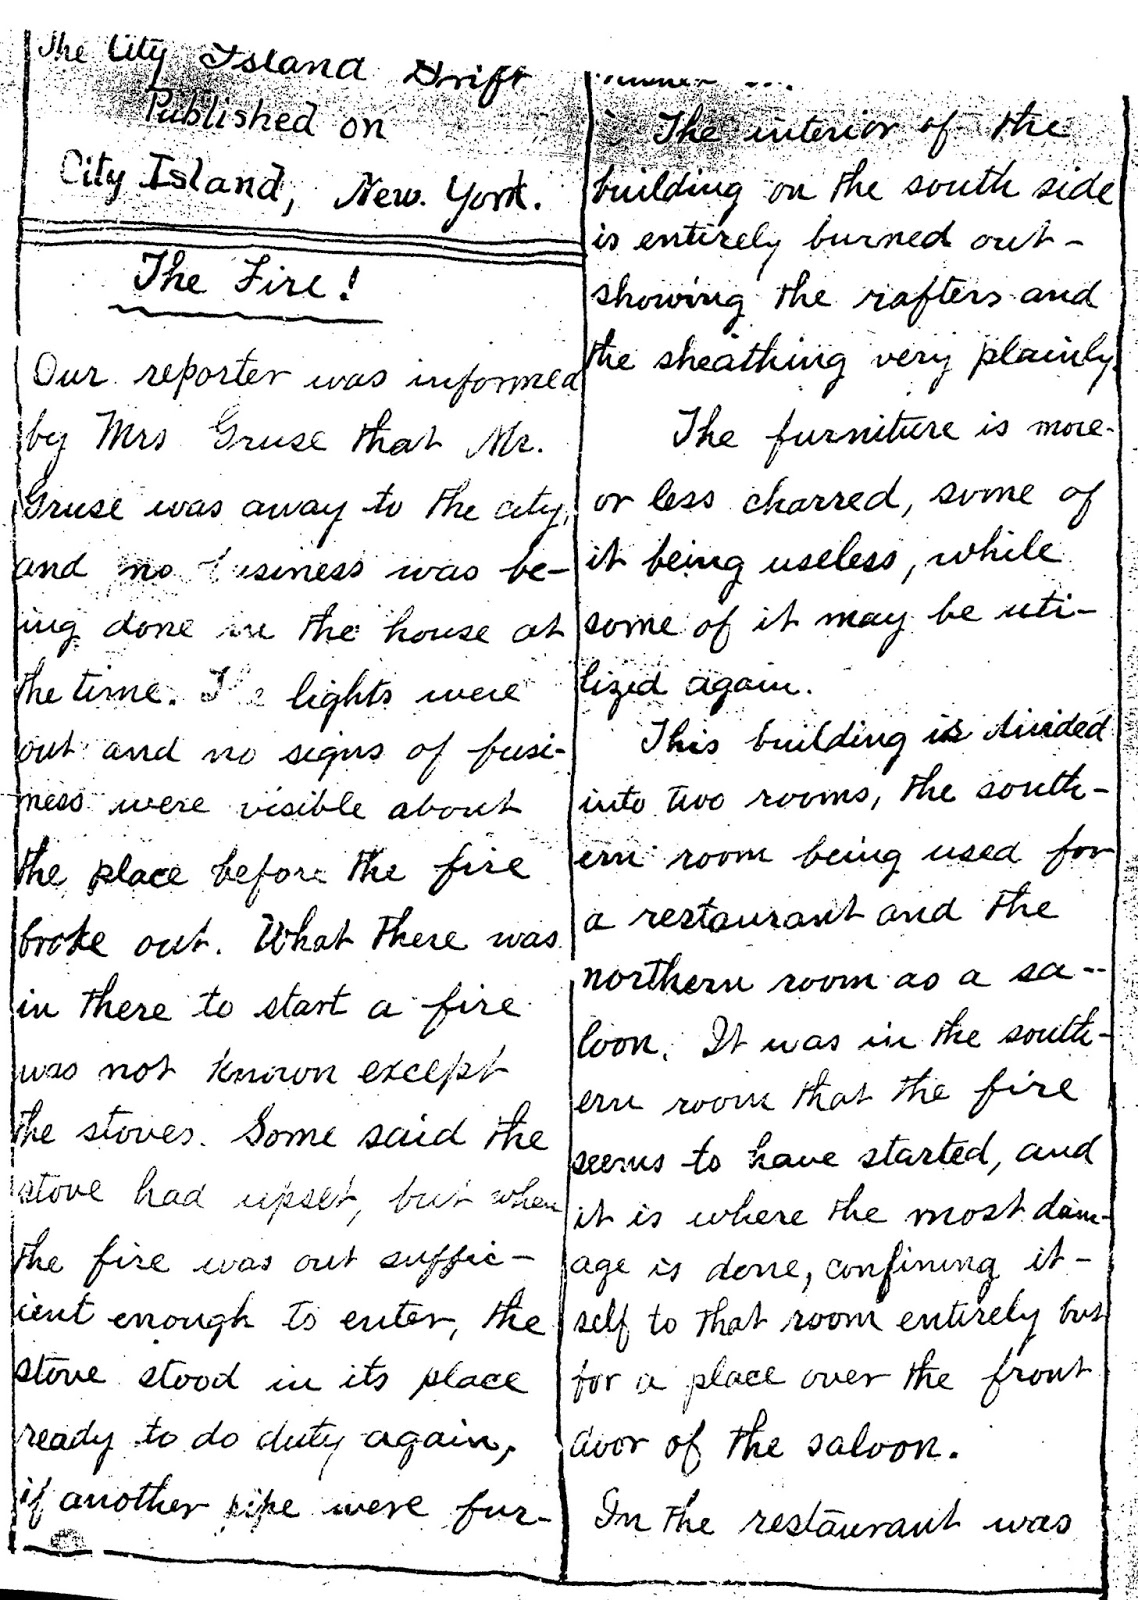 The City Island Drift
Published on
City Island, New. York.
The Fire!
Our reporter was informed
by Mrs Gruse that Mr.
Gruse was away to the city,
and no business was be-
ing done in the house at
the time. The lights were
out and no signs of busi-
ness were visible about
the place before the fire
broke out. What there was
in there to start a fire
was not known except
the stoves. Some said the
stove had upset, but when
the fire was out suffic-
ient enough to enter, the
stove stood in its place
ready to do duty again,
if another pipe were fur-
The interior of the
building on the south side
is entirely burned out-
showing the rafters and
the sheathing very plainly.
The furniture is more-
or less charred, some of
it being useless, while
some of it may be uti-
lized again.
This building is divided
into two rooms, the south-
ern room being used for
a restaurant and the
northern room as a sa--
loon. It was in the south-
ern room that the fire
seems to have started, and
it is where the most dam-
age is done, confining it-
self to that room entirely but
for a place over the front
door of the saloon.
In the restaurant was